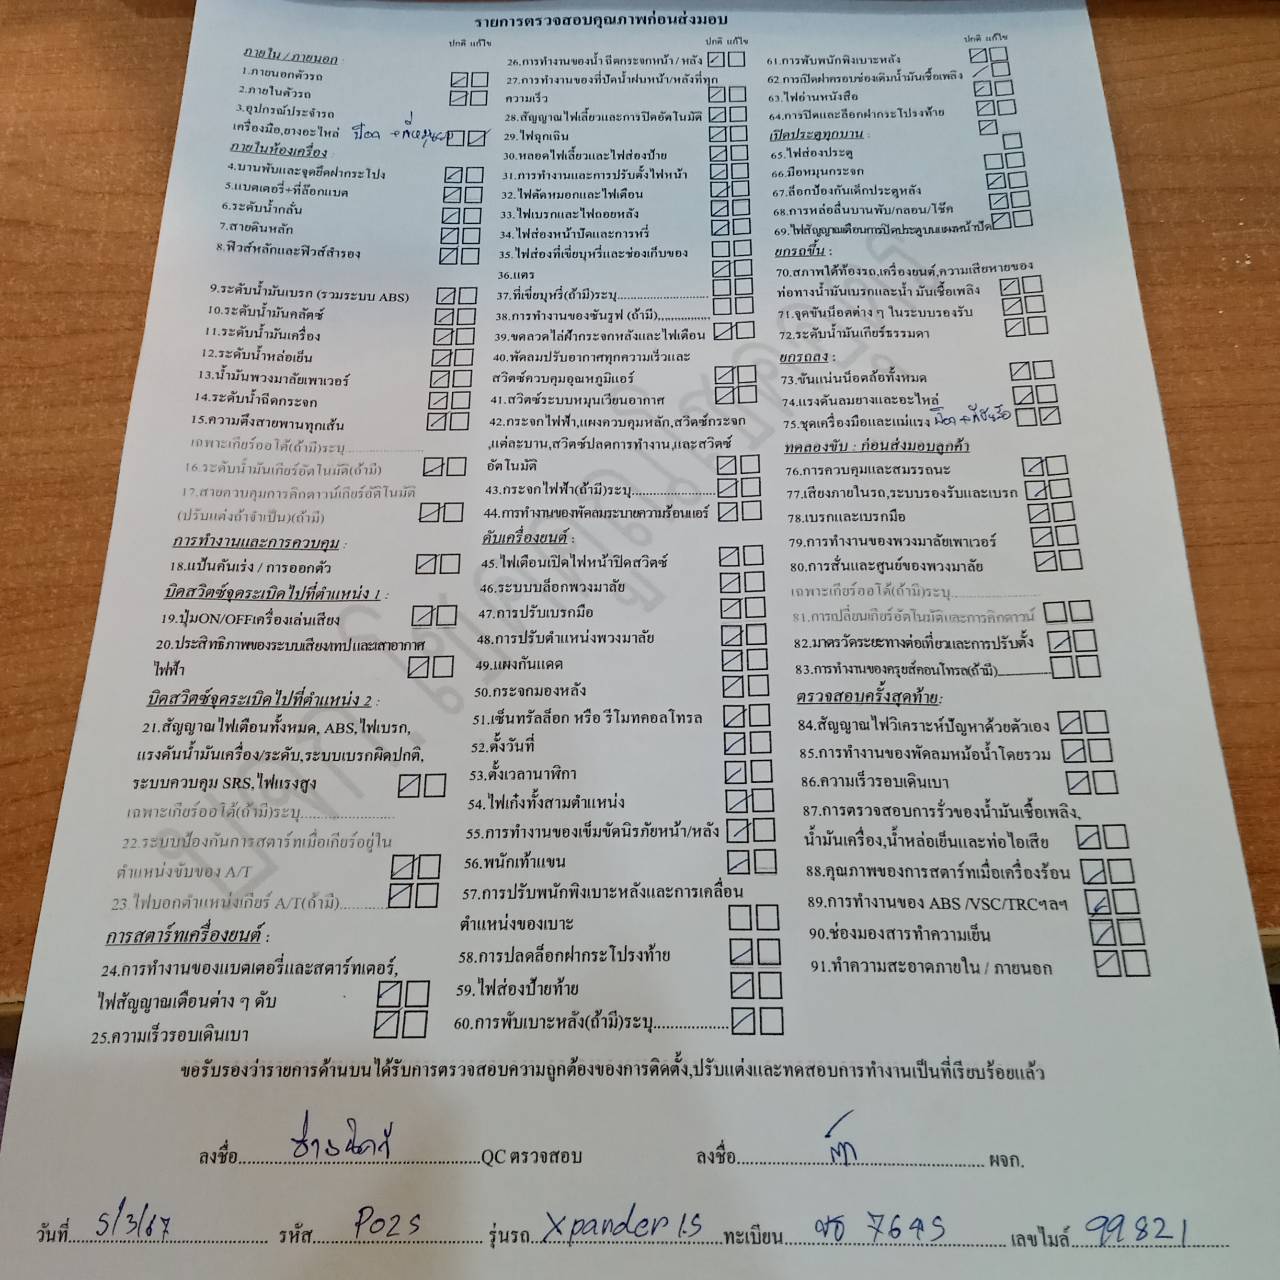 รายการตรวจสอบคุณภาพก่อนส่งมอบ
ปกติ แก้ไข
ภายใน / ภายนอก
1.ภายนอกตัวรถ
2.ภายในตัวรถ
3.อุปกรณ์ประจำรถ
เครื่องมือ,ยางอะไหล่
ภายในห้องเครื่อง
4.บานพับและจุดยึดฝากระโปง
5.แบตเตอรี่+ที่ล๊อกแบต
6.ระดับน้ำกลั่น
7.สายดินหลัก
8.ฟิวส์หลักและฟิวส์สำรอง
9.ระดับน้ำมันเบรก (รวมระบบ ABS)
10.ระดับน้ำมันคลัตช์
11.ระดับน้ำมันเครื่อง
12.ระดับน้ำหล่อเย็น
13.น้ำมันพวงมาลัยเพาเวอร์
14.ระดับน้ำฉีดกระจก
15.ความตึงสายพานทุกเส้น
เฉพาะเกียร์ออโต้(ถ้ามี)ระบุ
16.ระดับน้ำมันเกียร์อัตโนมัติ(ถ้ามี)
17.สายควบคุมการคิกดาวน์เกียร์อัติโนมัติ
(ปรับแต่งถ้าจำเป็น)(ถ้ามี)
การทำงานและการควบคุม :
18.แป้นคันเร่ง / การออกตัว
บิดสวิตช์จุดระเบิดไปที่ตำแหน่ง 1 :
19.ปุ่มON/OFFเครื่องเล่นเสียง
20.ประสิทธิภาพของระบบเสียงเทปและเสาอากาศ
ไฟฟ้า
บิดสวิตซ์จุดระเบิดไปที่ตำแหน่ง 2 :
21.สัญญาณไฟเตือนทั้งหมด, ABS,ไฟเบรก,
แรงดันน้ำมันเครื่อง/ระดับ,ระบบเบรกผิดปกติ,
ระบบควบคุม SRS,ไฟแรงสูง
เฉพาะเกียร์ออโต้(ถ้ามี)ระบุ
22.ระบบป้องกันการสตาร์ทเมื่อเกียร์อยู่ใน
ตำแหน่งขับของ A/T
23.ไฟบอกตำแหน่งเกียร์ A/T(ถ้ามี)
การสตาร์ทเครื่องยนต์ :
24.การทำงานของแบตเตอรี่และสตาร์ทเตอร์,
ไฟสัญญาณเตือนต่าง ๆ ดับ
25.ความเร็วรอบเดินเบา
ปกติ แก้ไข
26.การทำงานของน้ำ ฉีดกระจกหน้า / หลัง
27.การทำงานของที่ปัดน้ำฝนหน้า/หลังที่ทุก
ความเร็ว
28.สัญญาณไฟเลี้ยวและการปิดอัตโนมัติ
29.ไฟฉุกเฉิน
30.หลอดไฟเลี้ยวและไฟส่องป้าย
31.การทำงานและการปรับตั้งไฟหน้า
32.ไฟตัดหมอกและไฟเตือน
33.ไฟเบรกและไฟถอยหลัง
34.ไฟส่องหน้าปัดและการหรี่
35.ไฟส่องที่เขี่ยบุหรี่และช่องเก็บของ
36.แตร
37.ที่เขี่ยบุหรี่(ถ้ามี)ระบุ
38.การทำงานของซันรูฟ (ถ้ามี)
39.ขดลวดไล่ฝ้ากระจกหลังและไฟเตือน
40.พัดลมปรับอากาศทุกความเร็วและ
สวิตช์ควบคุมอุณหภูมิแอร์
41.สวิตช์ระบบหมุนเวียนอากาศ
42.กระจกไฟฟ้า,แผงควบคุมหลัก,สวิตช์กระจก
,แต่ละบาน,สวิตช์ปลดการทำงาน,และสวิตซ์
อัตโนมัติ
43.กระจกไฟฟ้า(ถ้ามี)ระบุ
44.การทำงานของพัดลมระบายความร้อนแอร์
ดับเครื่องยนต์ :
45.ไฟเตือนเปิดไฟหน้าปิดสวิตซ์
46.ระบบบล็อกพวงมาลัย
47.การปรับเบรกมือ
48.การปรับตำแหน่งพวงมาลัย
49.แผงกันแดด
50.กระจกมองหลัง
51.เซ็นทรัลล็อก หรือ รีโมทคอลโทรล
52.ตั้งวันที่
53.ตั้งเวลานาฬิกา
54.ไฟเก๋งทั้งสามตำแหน่ง
55.การทำงานของเข็มขัดนิรภัยหน้า/หลัง
56.พนักเท้าแขน
57.การปรับพนักพิงเบาะหลังและการเคลื่อน
ตำแหน่งของเบาะ
58.การปลดล็อกฝากระโปรงท้าย
59.ไฟส่องป้ายท้าย
60.การพับเบาะหลัง(ถ้ามี)ระบุ
ปกติ แก้ไข
61.การพับพนักพิงเบาะหลัง
62.การเปิดฝาครอบช่องเติมน้ำมันเชื้อเพลิง
63.ไฟอ่านหนังสือ
64.การปิดและล็อกฝากระโปรงท้าย
เปิดประตูทุกบาน :
65.ไฟส่องประตู
66.มือหมุนกระจก
67.ล็อกป้องกันเด็กประตูหลัง
68.การหล่อลื่นบานพับ/กลอน/โช๊ค
69.ไฟสัญญาณเตือนการปิดประตูบนแผงหน้าปัด
ยกรถขึ้น :
70.สภาพใต้ท้องรถ,เครื่องยนต์,ความเสียหายของ
ท่อทางน้ำมันเบรกและน้ำ มันเชื้อเพลิง
71.จุดขันน็อตต่าง ๆ ในระบบรองรับ
72.ระดับน้ำมันเกียร์ธรรมดา
ยกรถลง :
73.ขันแน่นน็อตล้อทั้งหมด
74.แรงดันลมยางและอะไหล่
75.ชุดเครื่องมือและแม่แรง
ทดลองขับ : ก่อนส่งมอบลูกค้า
76.การควบคุมและสมรรถนะ
77.เสียงภายในรถ,ระบบรองรับและเบรก
78.เบรกและเบรกมือ
79.การทำงานของพวงมาลัยเพาเวอร์
80.การสั่นและศูนย์ของพวงมาลัย
เฉพาะเกียร์ออโต้(ถ้ามี)ระบุ
81.การเปลี่ยนเกียร์อัตโนมัติและการคิกดาวน์
82.มาตรวัดระยะทางต่อเที่ยวและการปรับตั้ง
83.การทำงานของครุยส์คอนโทรล(ถ้ามี)
ตรวจสอบครั้งสุดท้าย:
84.สัญญาณไฟวิเคราะห์ปัญหาด้วยตัวเอง
85.การทำงานของพัดลมหม้อน้ำโดยรวม
86.ความเร็วรอบเดินเบา
87.การตรวจสอบการรั่วของน้ำมันเชื้อเพลิง,
น้ำมันเครื่อง,น้ำหล่อเย็นและท่อไอเสีย
88.คุณภาพของการสตาร์ทเมื่อเครื่องร้อน
89.การทำงานของ ABS /VSC/TRCฯลฯ
90.ช่องมองสารทำความเย็น
91.ทำความสะอาดภายใน / ภายนอก
ขอรับรองว่ารายการด้านบนได้รับการตรวจสอบความถูกต้องของการติดตั้ง,ปรับแต่งและทดสอบการทำงานเป็นที่เรียบร้อยแล้ว
ลงชื่อ QC ตรวจสอบ ลงชื่อ ผจก.
วันที่ 5/3/67 รหัส P025 รุ่นรถ Xpander 1.5 ทะเบียน 7645 เลขไมล์ 99821